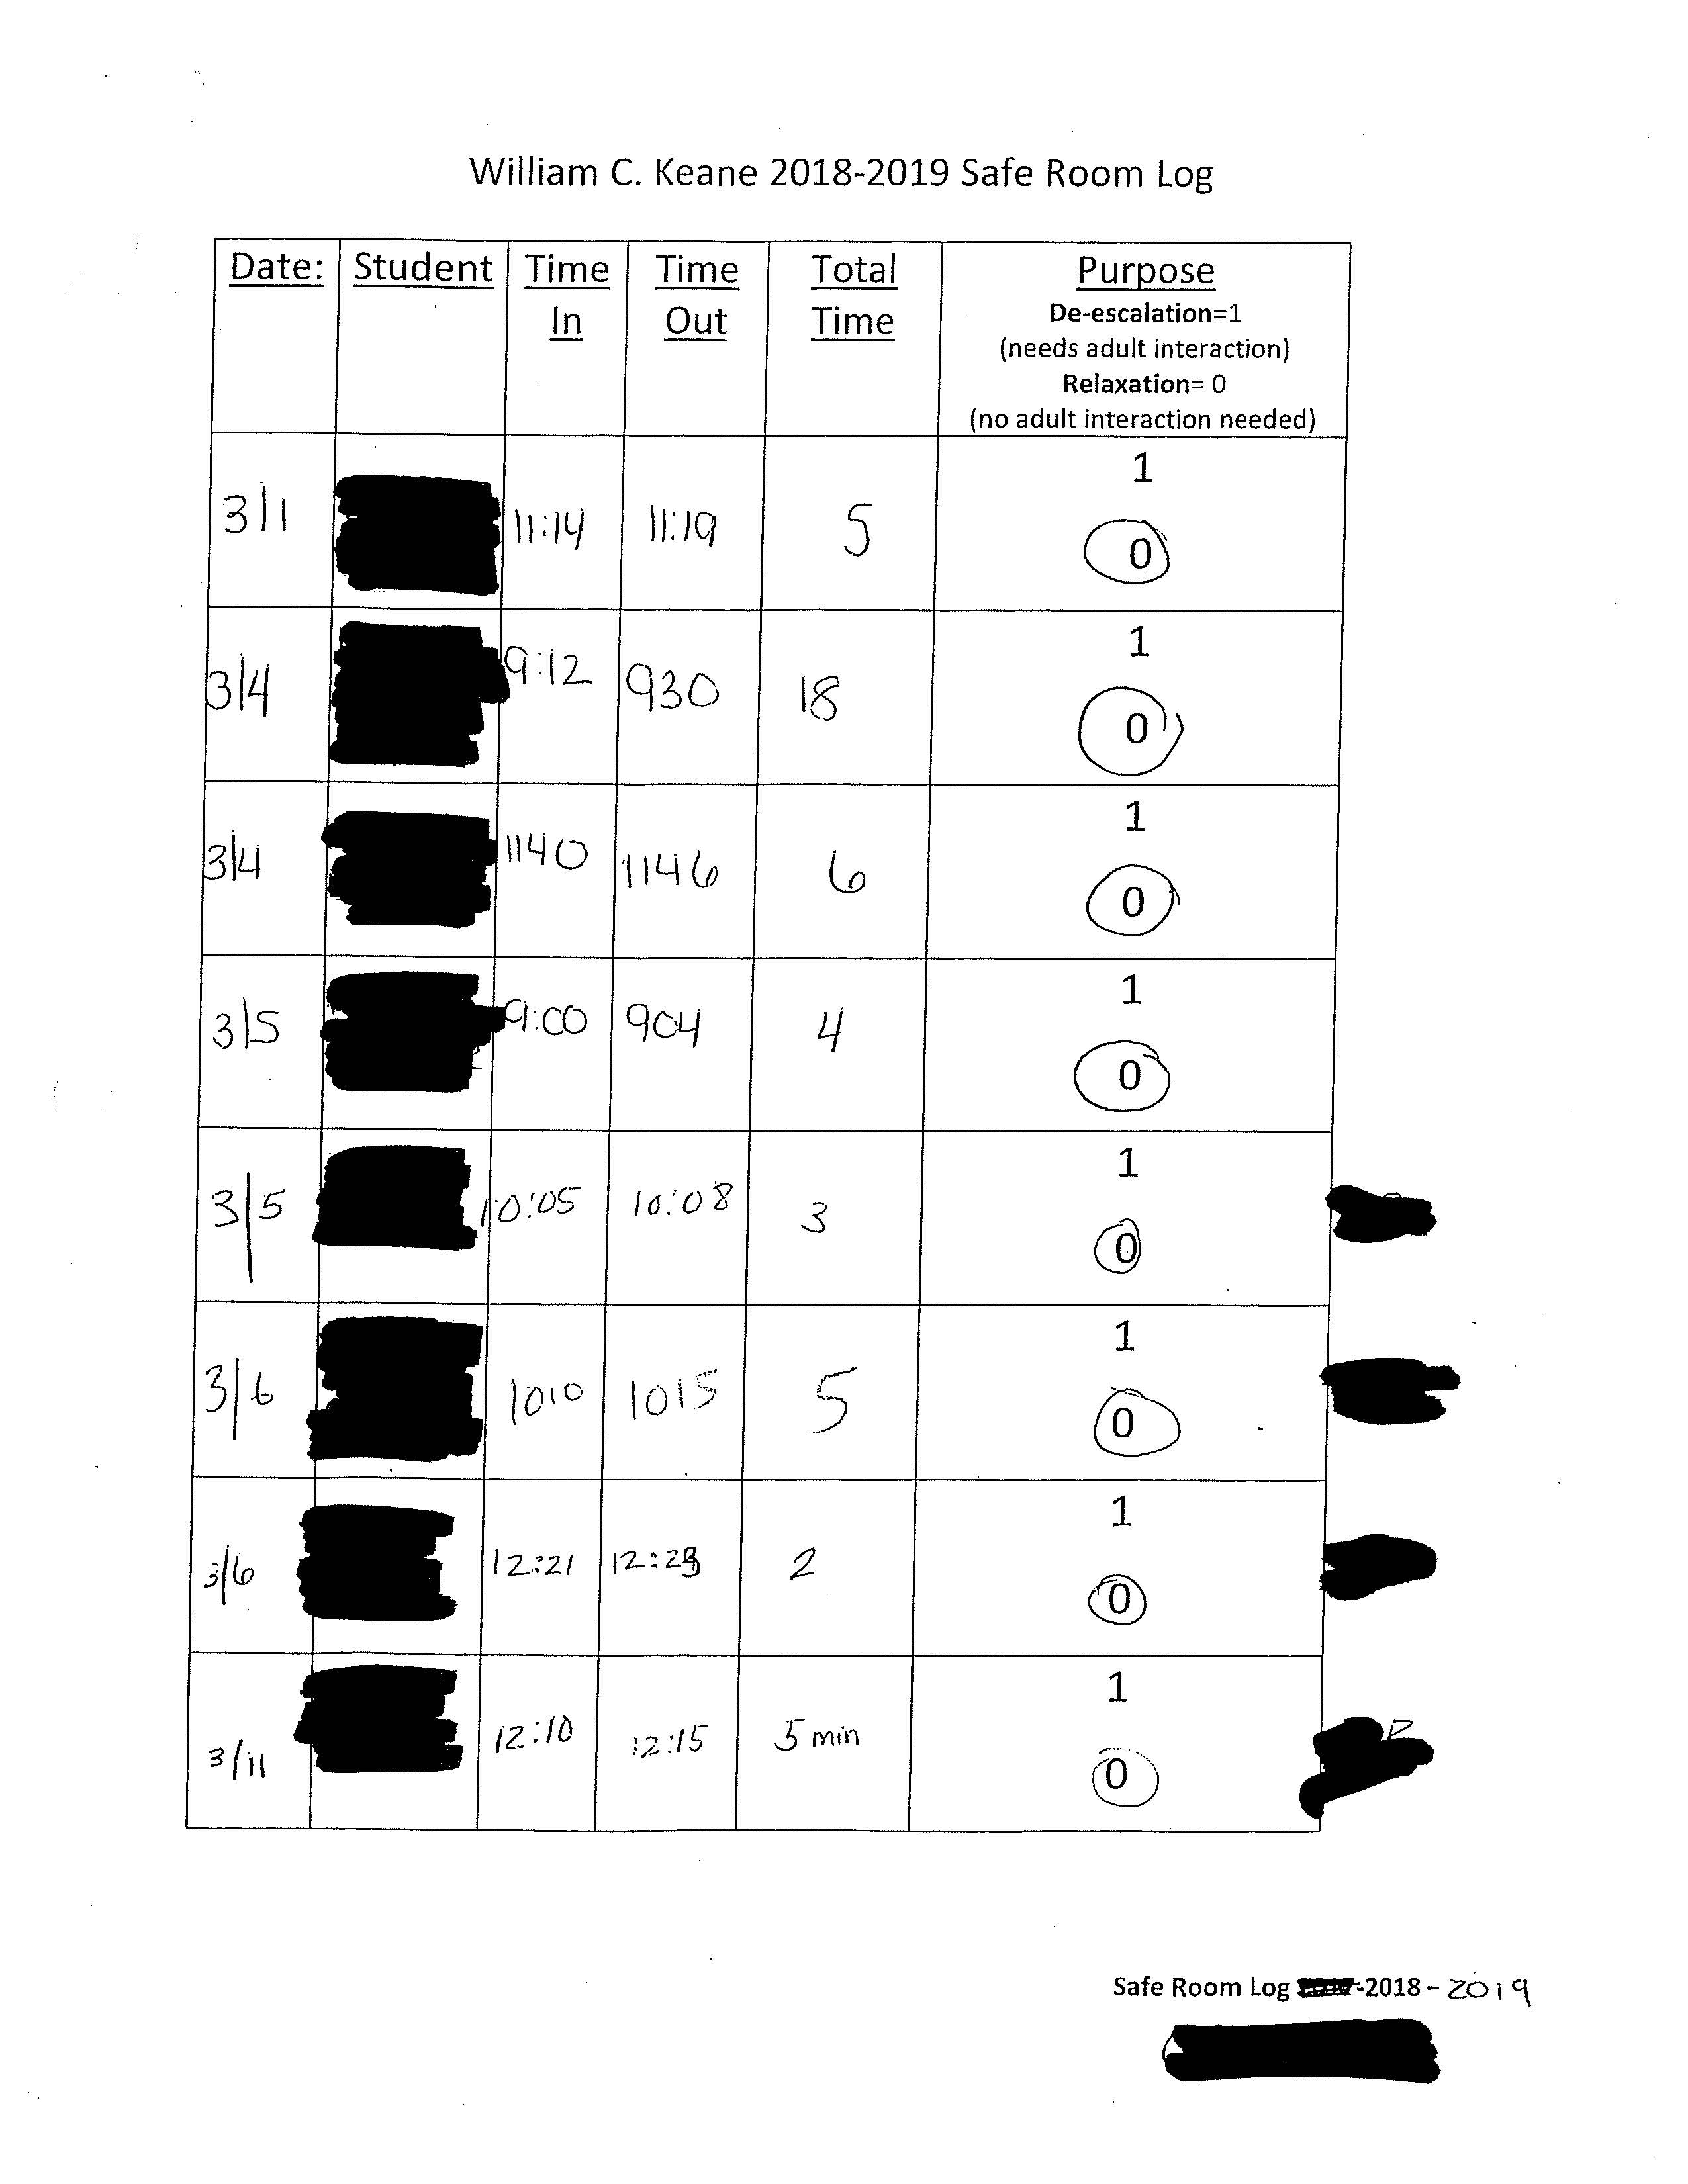 William C. Keane 2018-2019 Safe Room Log
Date: Student Time In Time Out Total Time Purpose
De-escalation=1
(needs adult interaction)
Relaxation= 0
(no adult interaction needed)
1
3/1 11:14 11:19 5 0
1
3/4 9:12 930 18 0
1
3/4 1140 1146 6 0
1
3/5 9:00 904 4 0
1
3/5 10:05 10:08 3 0
1
3/6 1010 1015 5 0
1
3/6 12:21 12:23 2 0
1
3/11 12:10 12:15 5 min 0
Safe Room Log -2018 - 2019